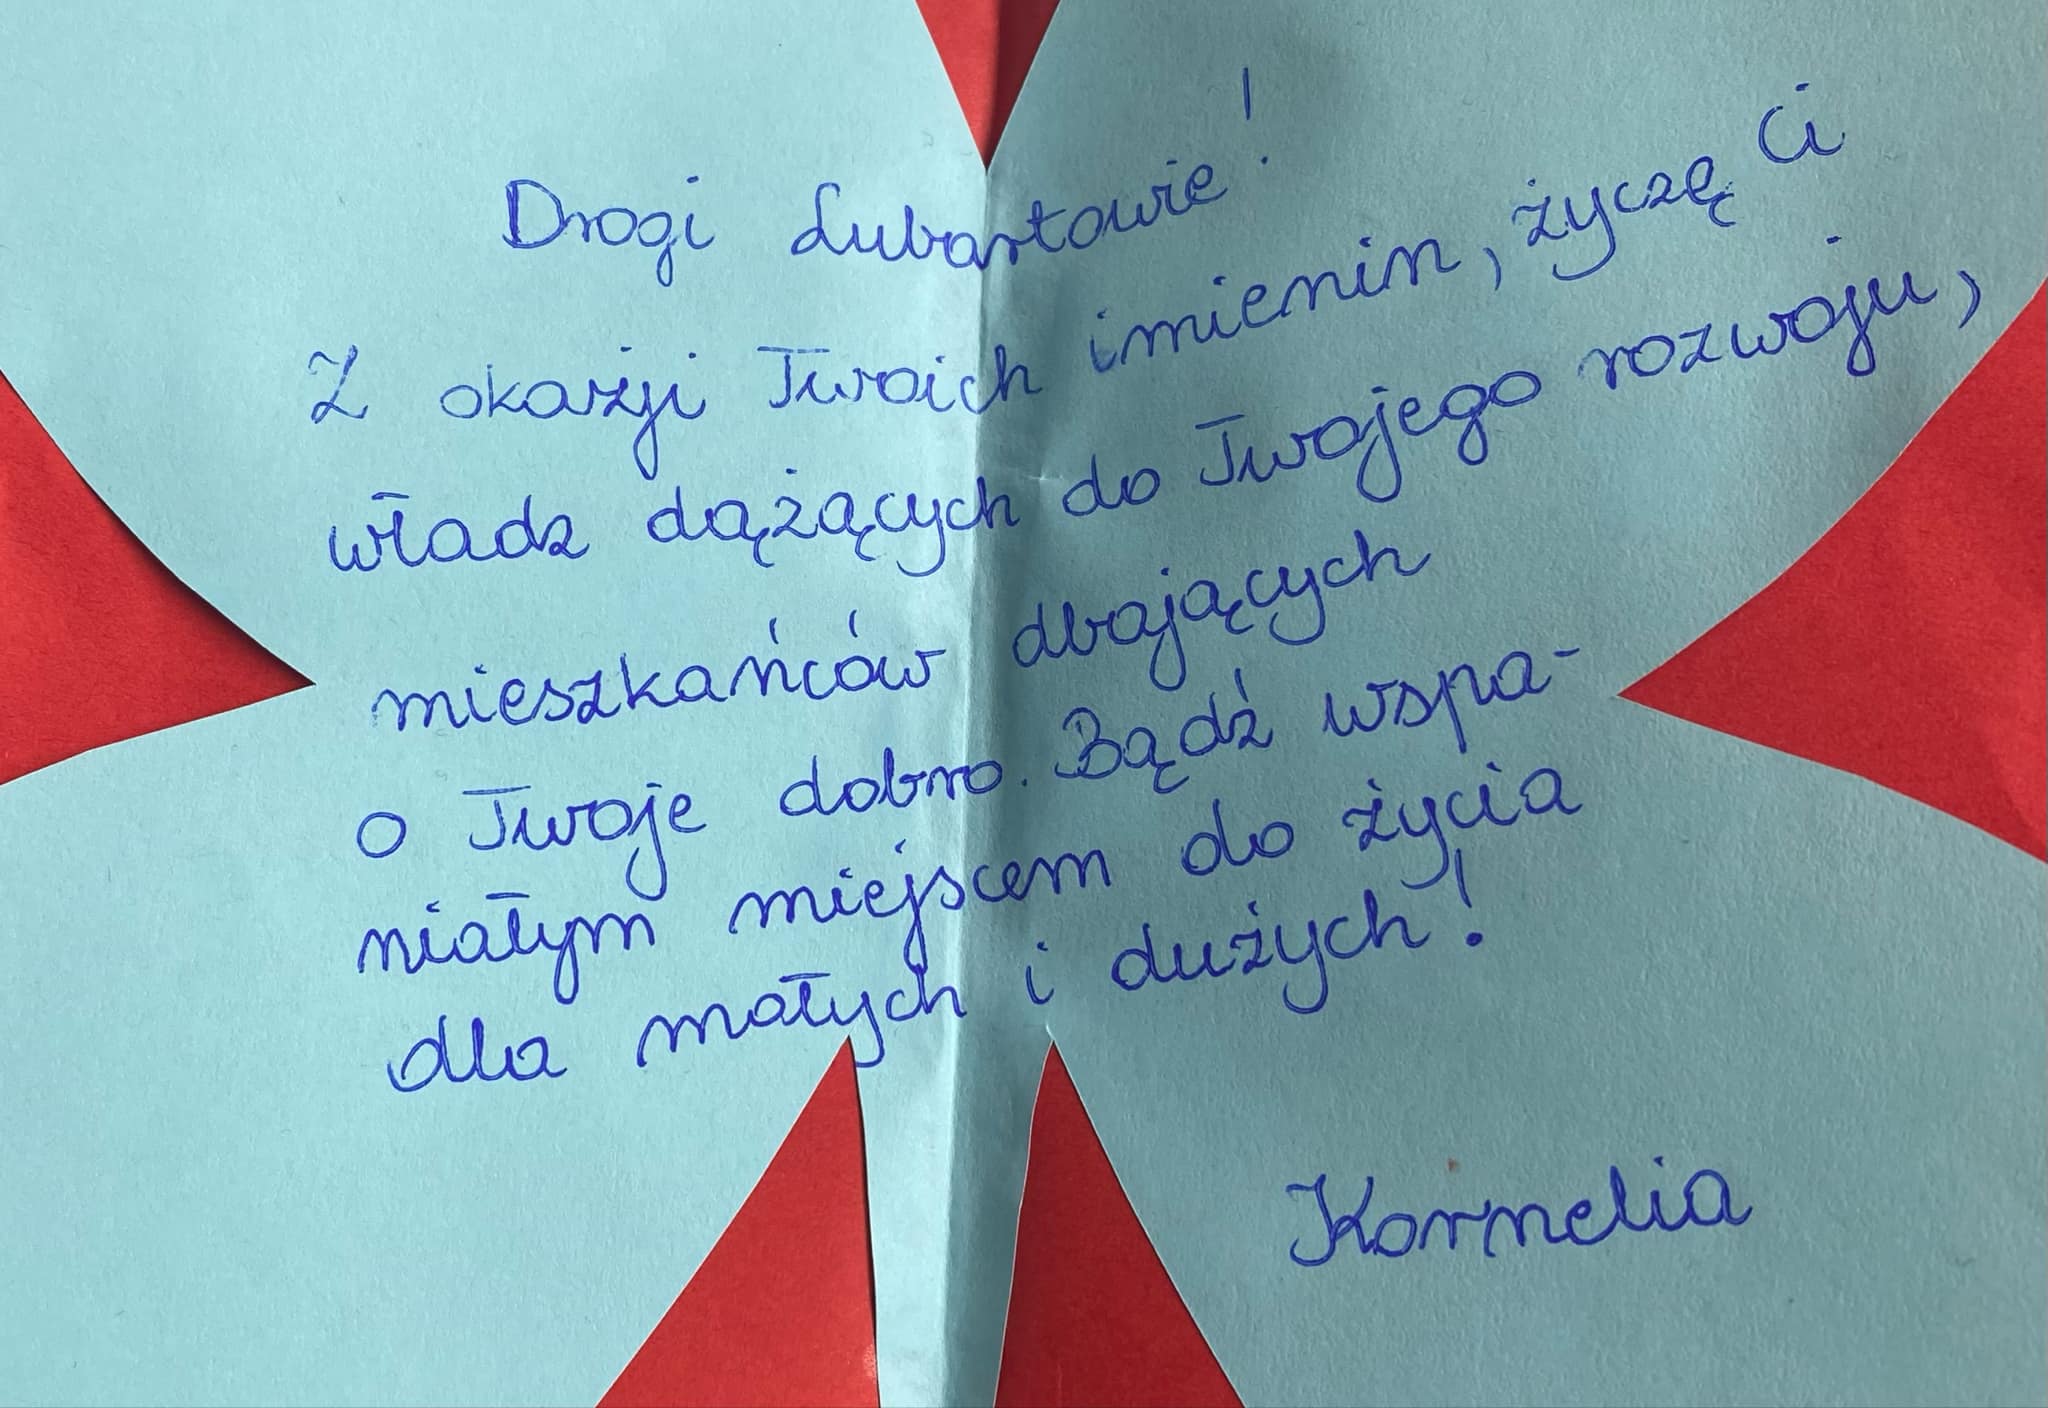 Drogi Lubartowie!
Z okazji Twoich imienin, życzę Ci
władz dążących do Twojego rozwoju,
mieszkańców dbających
o Twoje dobro. Bądź wspa-
niałym miejscem do życia
dla małych i dużych!
Kornelia